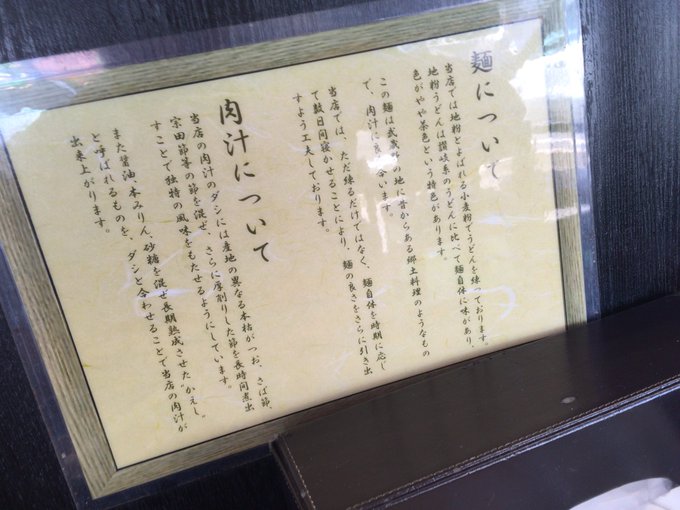 麺について
当店では地粉とよばれる小麦粉でうどんを練っております。
地粉うどんは讃岐系のうどんに比べて麺自体に味があり、
色がやや茶色という特色があります。
この麺は武蔵野の地に昔からある郷土料理のようなもの
で、肉汁に良く合います。
当店では、ただ練るだけではなく、麺自体を時期に応じ
て数日間寝かせることにより、麺の良さをさらに引き出
すよう工夫しております。
肉汁について
当店の肉汁のダシには産地の異なる本枯がつお、さば節、
宗田節等の節を混ぜ、さらに厚削りした節を長時間煮出
すことで独特の風味をもたせるようにしています。
また醤油、本みりん、砂糖を混ぜ長期熟成させた"かえし"
と呼ばれるものを、ダシと合わせることで当店の肉汁が
出来上がります。